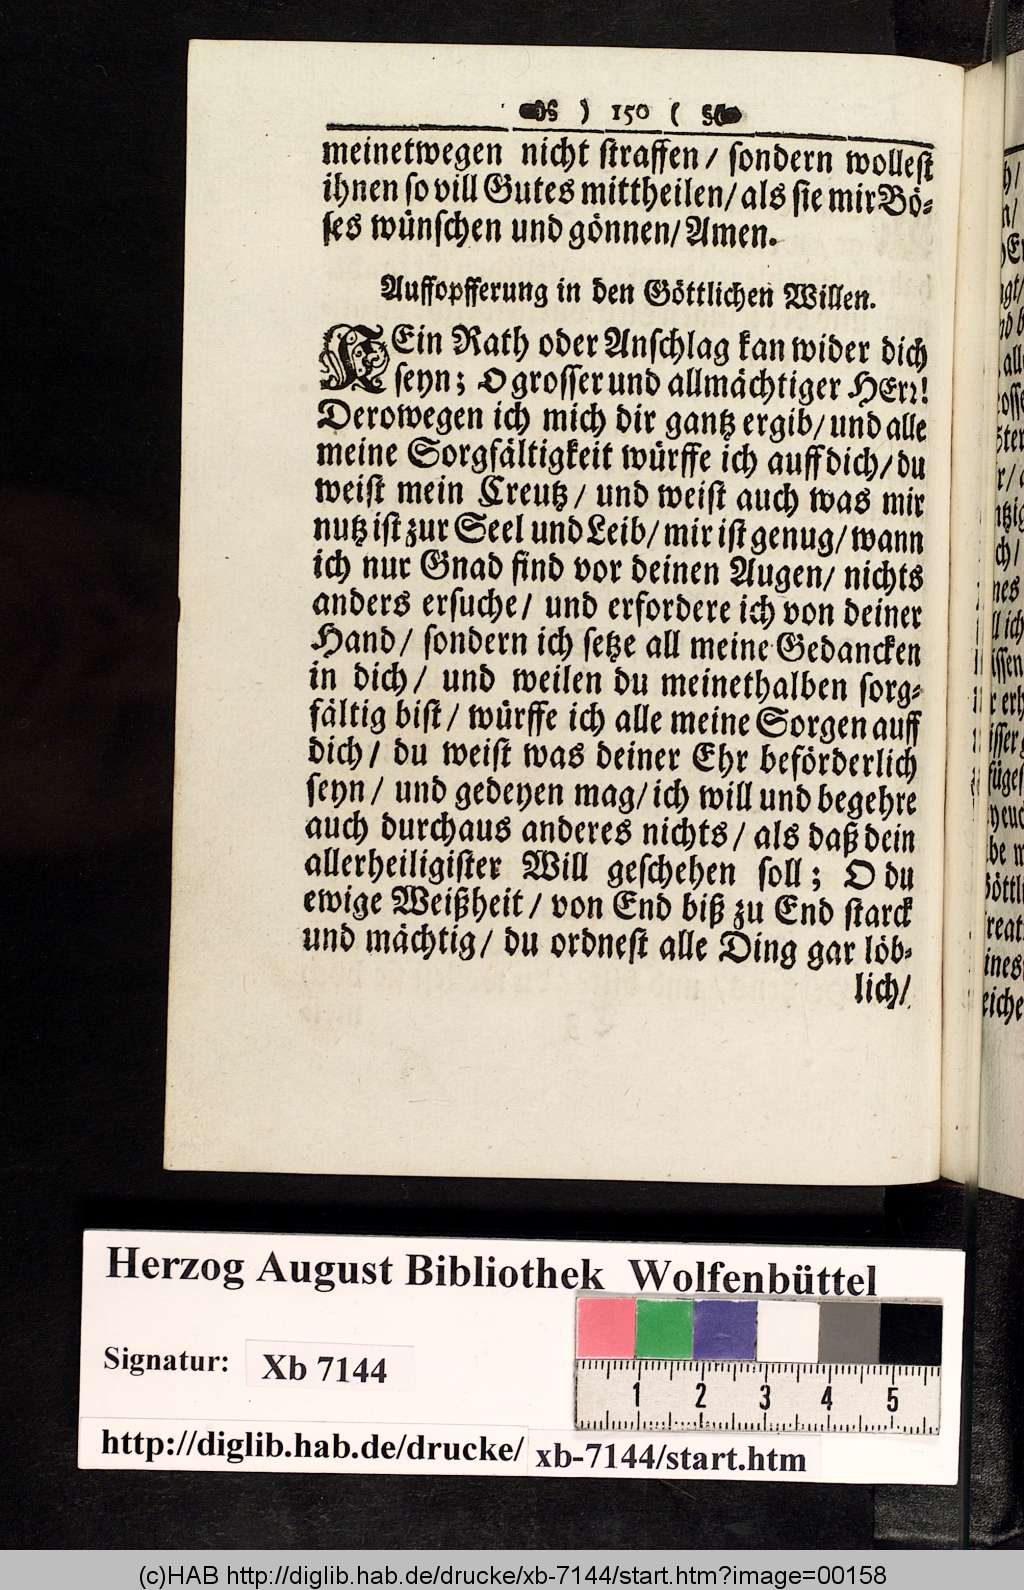 ) 150 (
meinetwegen nicht straffen / sondern wollest
ihnen so vill Gutes mittheilen / als sie mir Bö-
ses wünschen und gönnen / Amen.
Auffopfferung in den Göttlichen Willen.
KEin Rath oder Anschlag kan wider dich
seyn; O grosser und allmächtiger HErr!
Derowegen ich mich dir gantz ergib / und alle
meine Sorgfältigkeit würffe ich auff dich / du
weist mein Creutz / und weist auch was mir
nutz ist zur Seel und Leib / mir ist genug / wann
ich nur Gnad find vor deinen Augen / nichts
anders ersuche / und erfordere ich von deiner
Hand / sondern ich setze all meine Gedancken
in dich / und weilen du meinethalben sorg-
fältig bist / würffe ich alle meine Sorgen auff
dich / du weist was deiner Ehr beförderlich
seyn / und gedeyen mag / ich will und begehre
auch durchaus anderes nichts / als daß dein
allerheiligister Will geschehen soll; O du
ewige Weißheit / von End biß zu End starck
und mächtig / du ordnest alle Ding gar löb-
lich /
Herzog August Bibliothek Wolfenbüttel
Signatur: Xb 7144
1 2 3 4 5
http://diglib.hab.de/drucke/ xb-7144/start.htm
(c)HAB http://diglib.hab.de/drucke/xb-7144/start.htm?image=00158